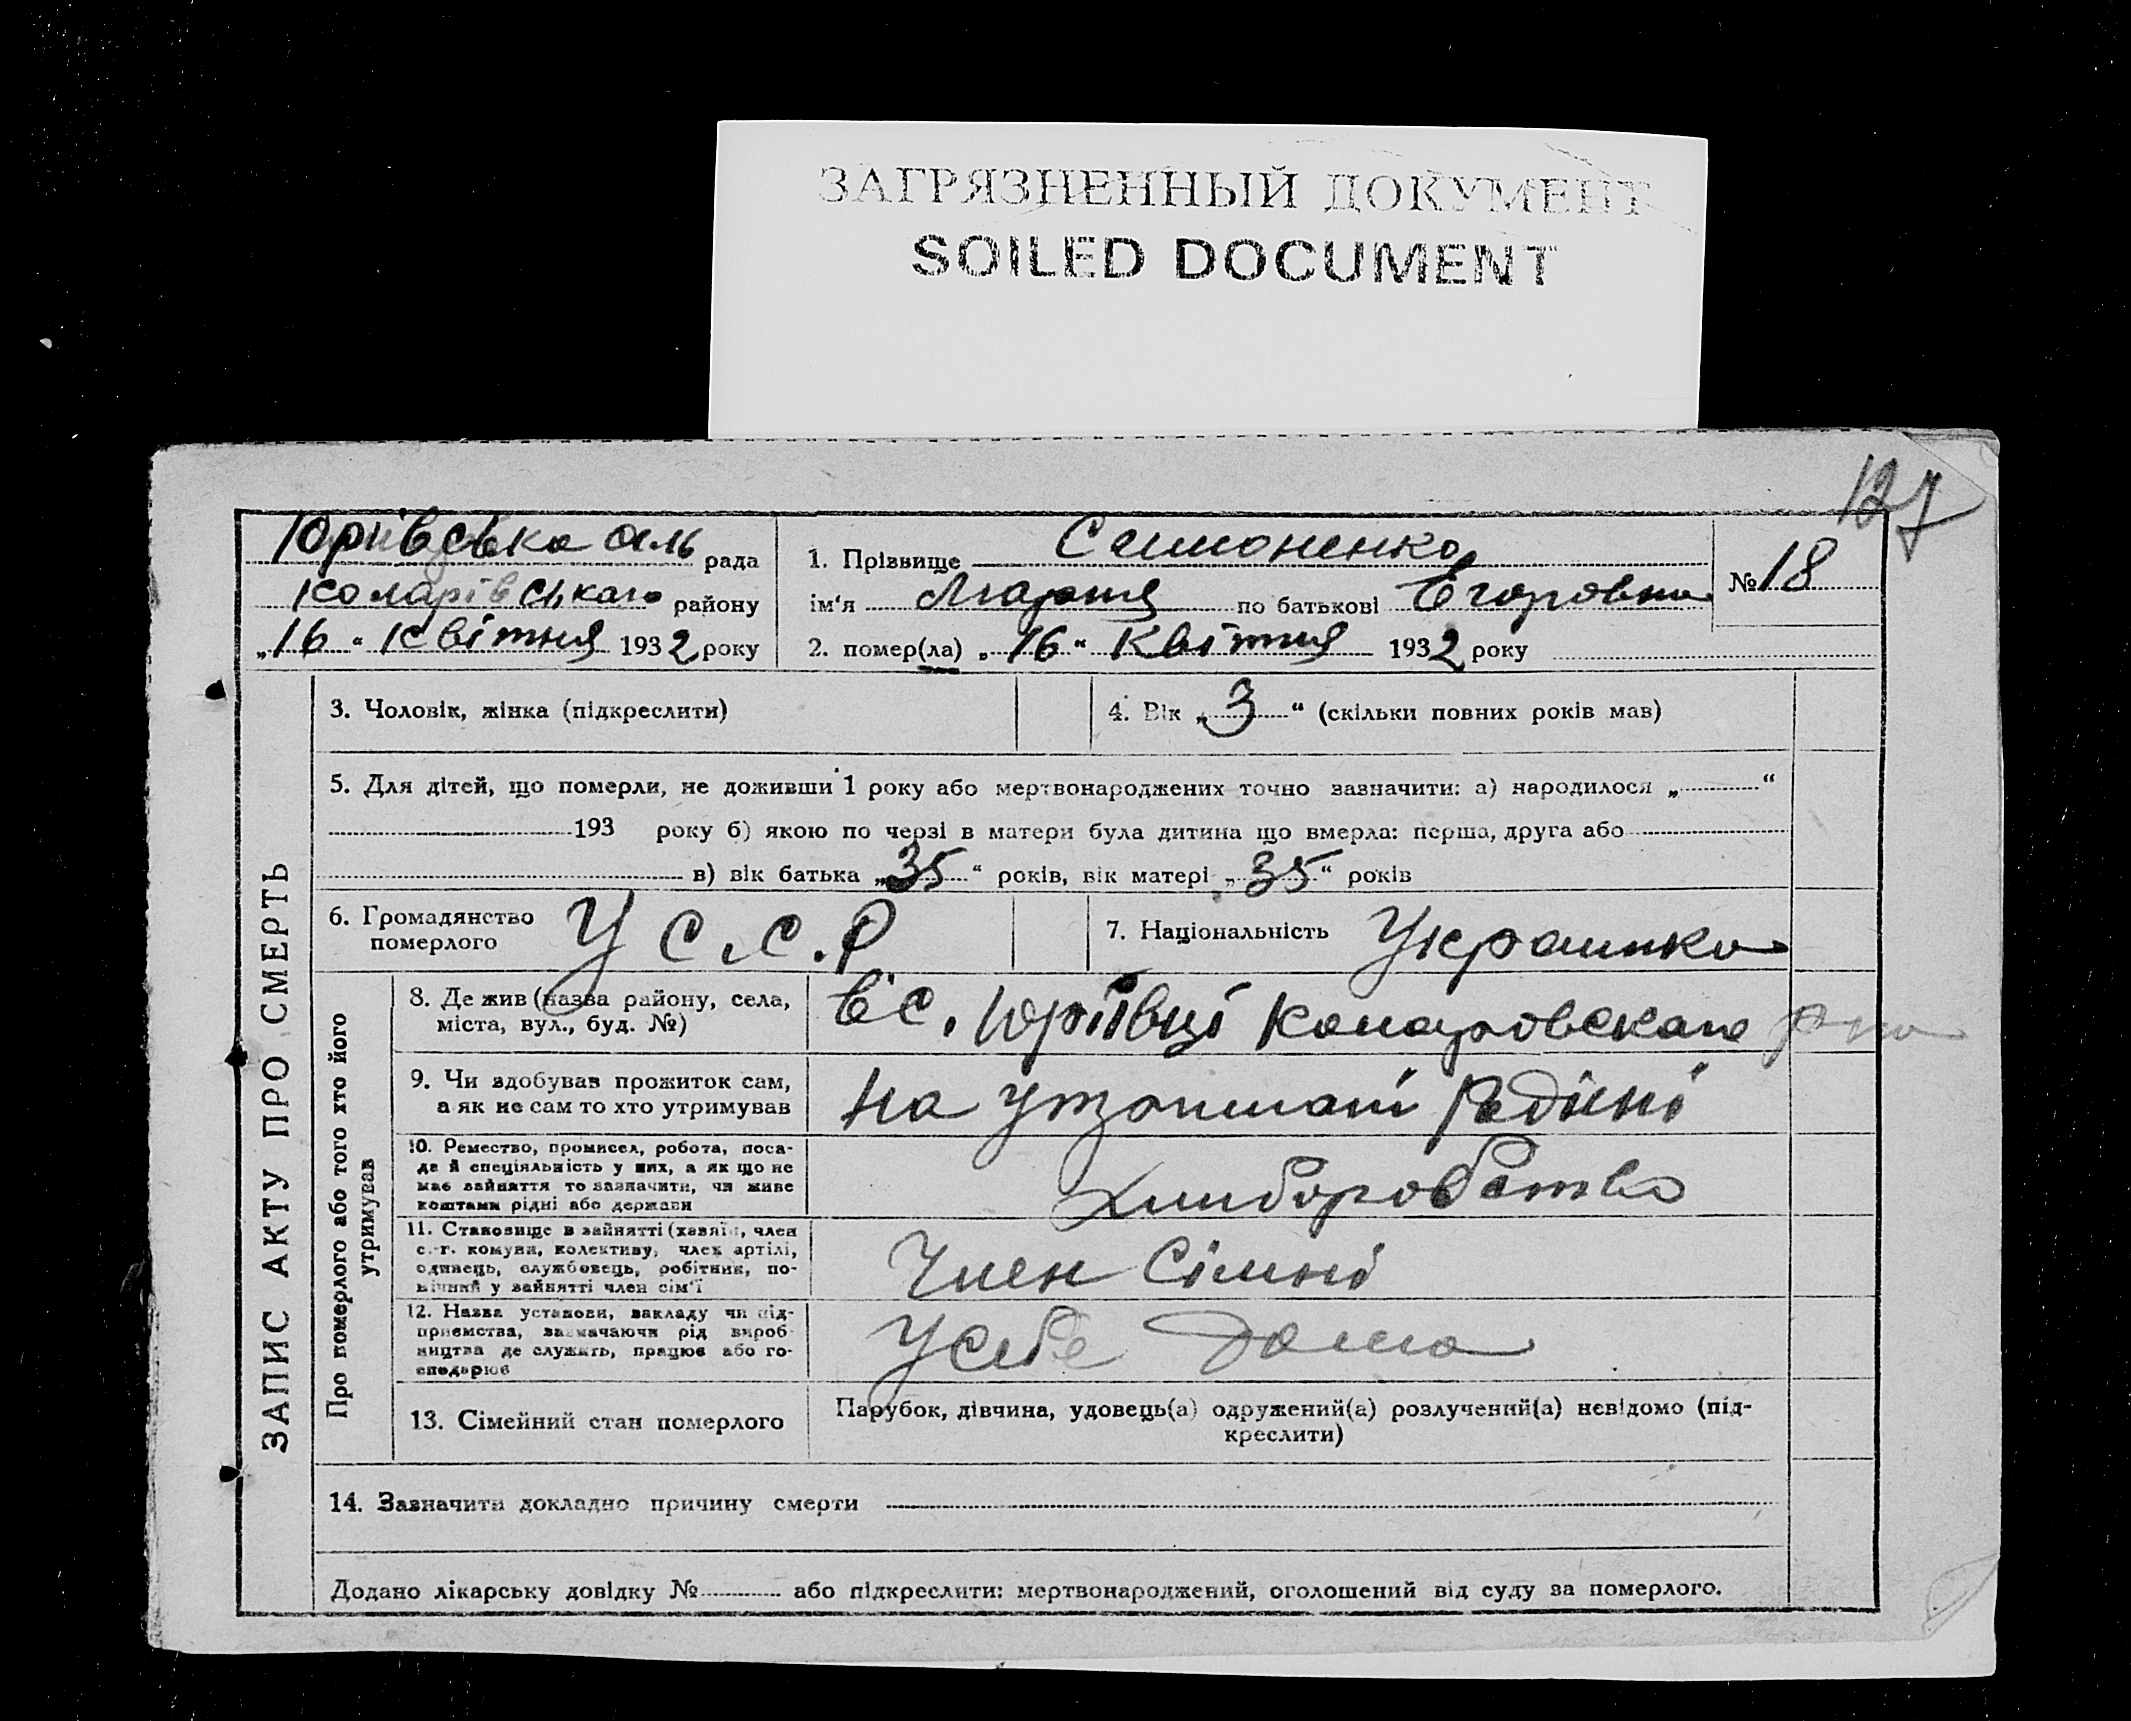 ЗАГРЯЗНЕННЫЙ ДОКУМЕНТ
SOILED DOCUMENT
127
Юрівська сіль рада
Комарівського району
„16“ Квітня 1932 року
1. Прізвище Симоненко
ім‘я Мария по батькові Егоровна
№ 18
2. помер(ла) „16“ Квітня 1932 року
ЗАПИС АКТУ ПРО СМЕРТЬ
3. Чоловік, жінка (підкреслити)
4. Вік „3“ (скільки повних років мав)
5. Для дітей, що померли, не доживши 1 року або мертвонароджених точно зазначити: а) народилося „ “
193 року б) якою по черзі в матери була дитина що вмерла: перша, друга або
в) вік батька „35“ років, вік матері „35“ років
6. Громадянство
померлого
У С.С.Р
7. Національність Украинка
Про померлого або того хто його
утримував
8. Де жив (назва району, села,
міста, вул., буд. №)
в с. Юріївці Комаровскаго р-на
9. Чи здобував прожиток сам,
а як не сам то хто утримував
на утриманї Родіні
10. Ремество, промисел, робота, поса-
да й спеціяльність у них, а як що не
має зайняття то зазначити, чи живе
коштами рідні або держави
Хлиборобство
11. Становище в зайнятті (хазяїн, член
с.-г. комуни, колективу, член артілі,
одинець, службовець, робітник, по-
мічний у зайнятті член сім‘ї
Член Сімні
12. Назва установи, закладу чи під-
приємства, зазначаючи рід вироб-
ництва де служить, працює або го-
сподарює
У себе дома
13. Сімейний стан померлого
Парубок, дівчина, удовець(а) одружений(а) розлучений(а) невідомо (під-
креслити)
14. Зазначити докладно причину смерти
Додано лікарську довідку № або підкреслити: мертвонароджений, оголошений від суду за померлого.